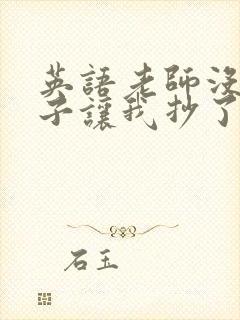 英語老師沒
子讓我抄了
石玉